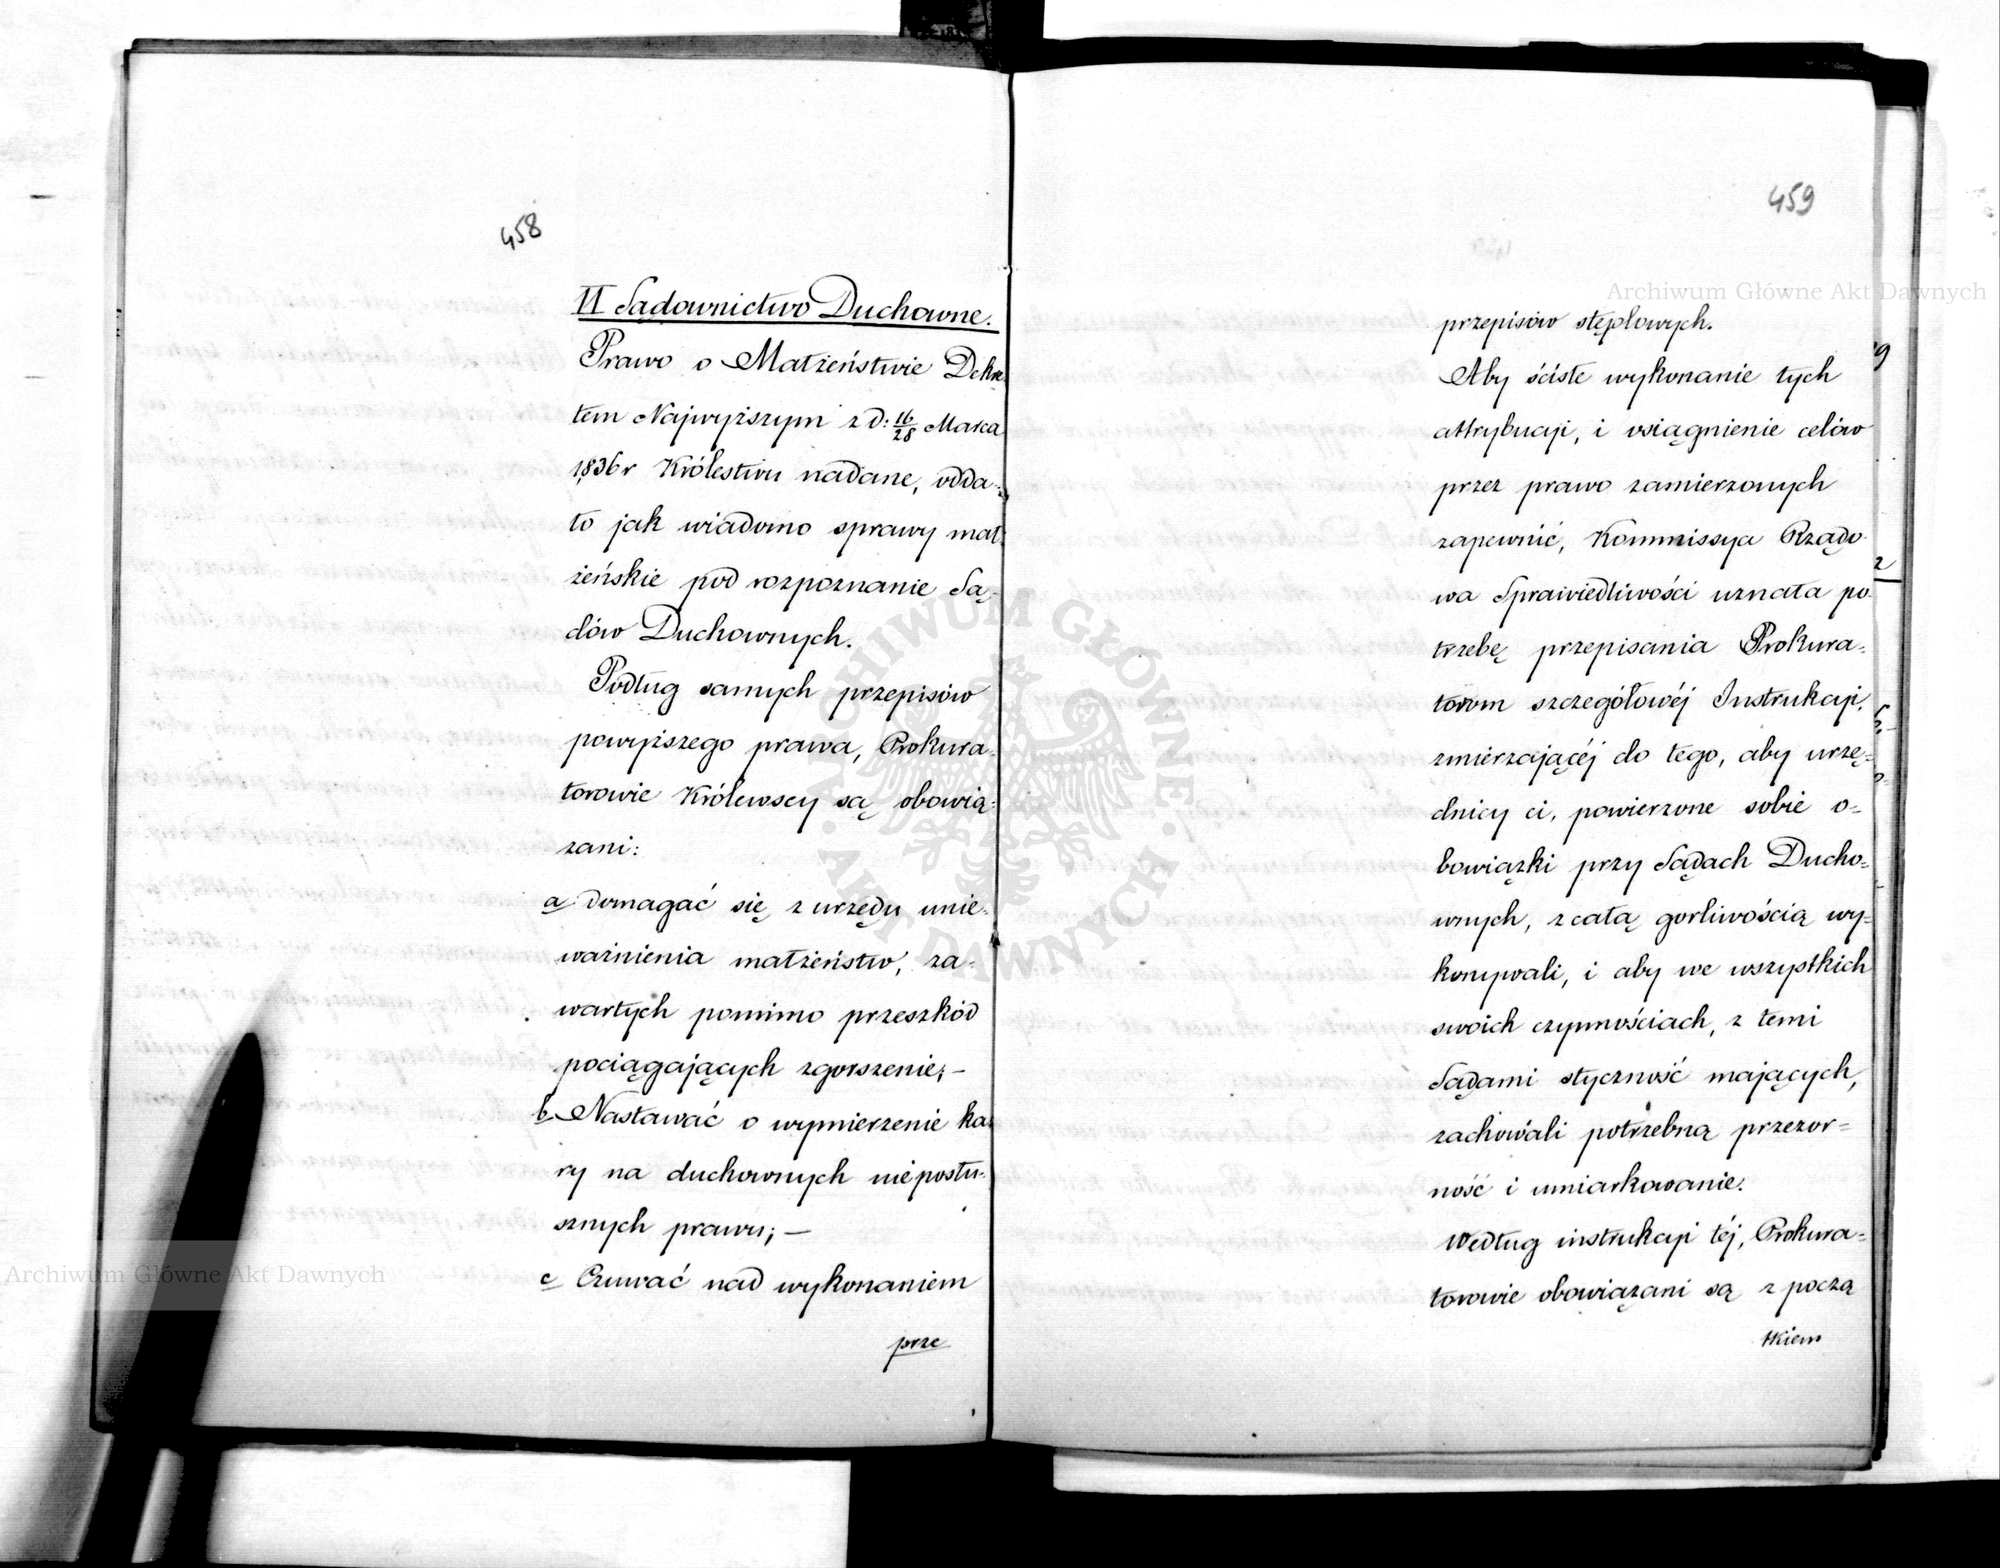 458
VI Sądownictwo Duchowne.
Prawo o Małżeństwie Dekre
tem Najwyższym z d: 16/28 Marca
1836 r Królestwu nadane, odda-
ło jak wiadomo sprawy mał-
żeńskie pod rozpoznanie Są-
dów Duchownych.
Podług samych przepisów
powyższego prawa, Prokura-
torowie Królewscy są obowią-
zani:
a domagać się z urzędu unie-
ważnienia małżeństw, za-
wartych pomimo przeszkód
pociągających zgorszenie; —
b Nastawać o wymierzenie ka-
ry na duchownych nieposłu-
sznych prawu; —
c Czuwać nad wykonaniem
prze
459
przepisów stęplowych.
Aby ścisłe wykonanie tych
attrybucji, i osiągnienie celów
przez prawo zamierzonych
zapewnić, Kommissya Rządo-
wa Sprawiedliwości uznała po-
trzebę przepisania Prokura-
torom szczegółowéj Instrukcji,
zmierzającéj do tego, aby urzę-
dnicy ci, powierzone sobie o-
bowiązki przy Sądach Ducho-
wnych, z całą gorliwością wy-
konywali, i aby we wszystkich
swoich czynnościach, z temi
Sądami styczność mających,
zachowali potrzebną przezor-
ność i umiarkowanie.
Według instrukcji téj, Prokura-
torowie obowiązani są z począ
tkiem
Archiwum Główne Akt Dawnych
Archiwum Główne Akt Dawnych
ARCHIWUM GŁÓWNE · AKT DAWNYCH ·